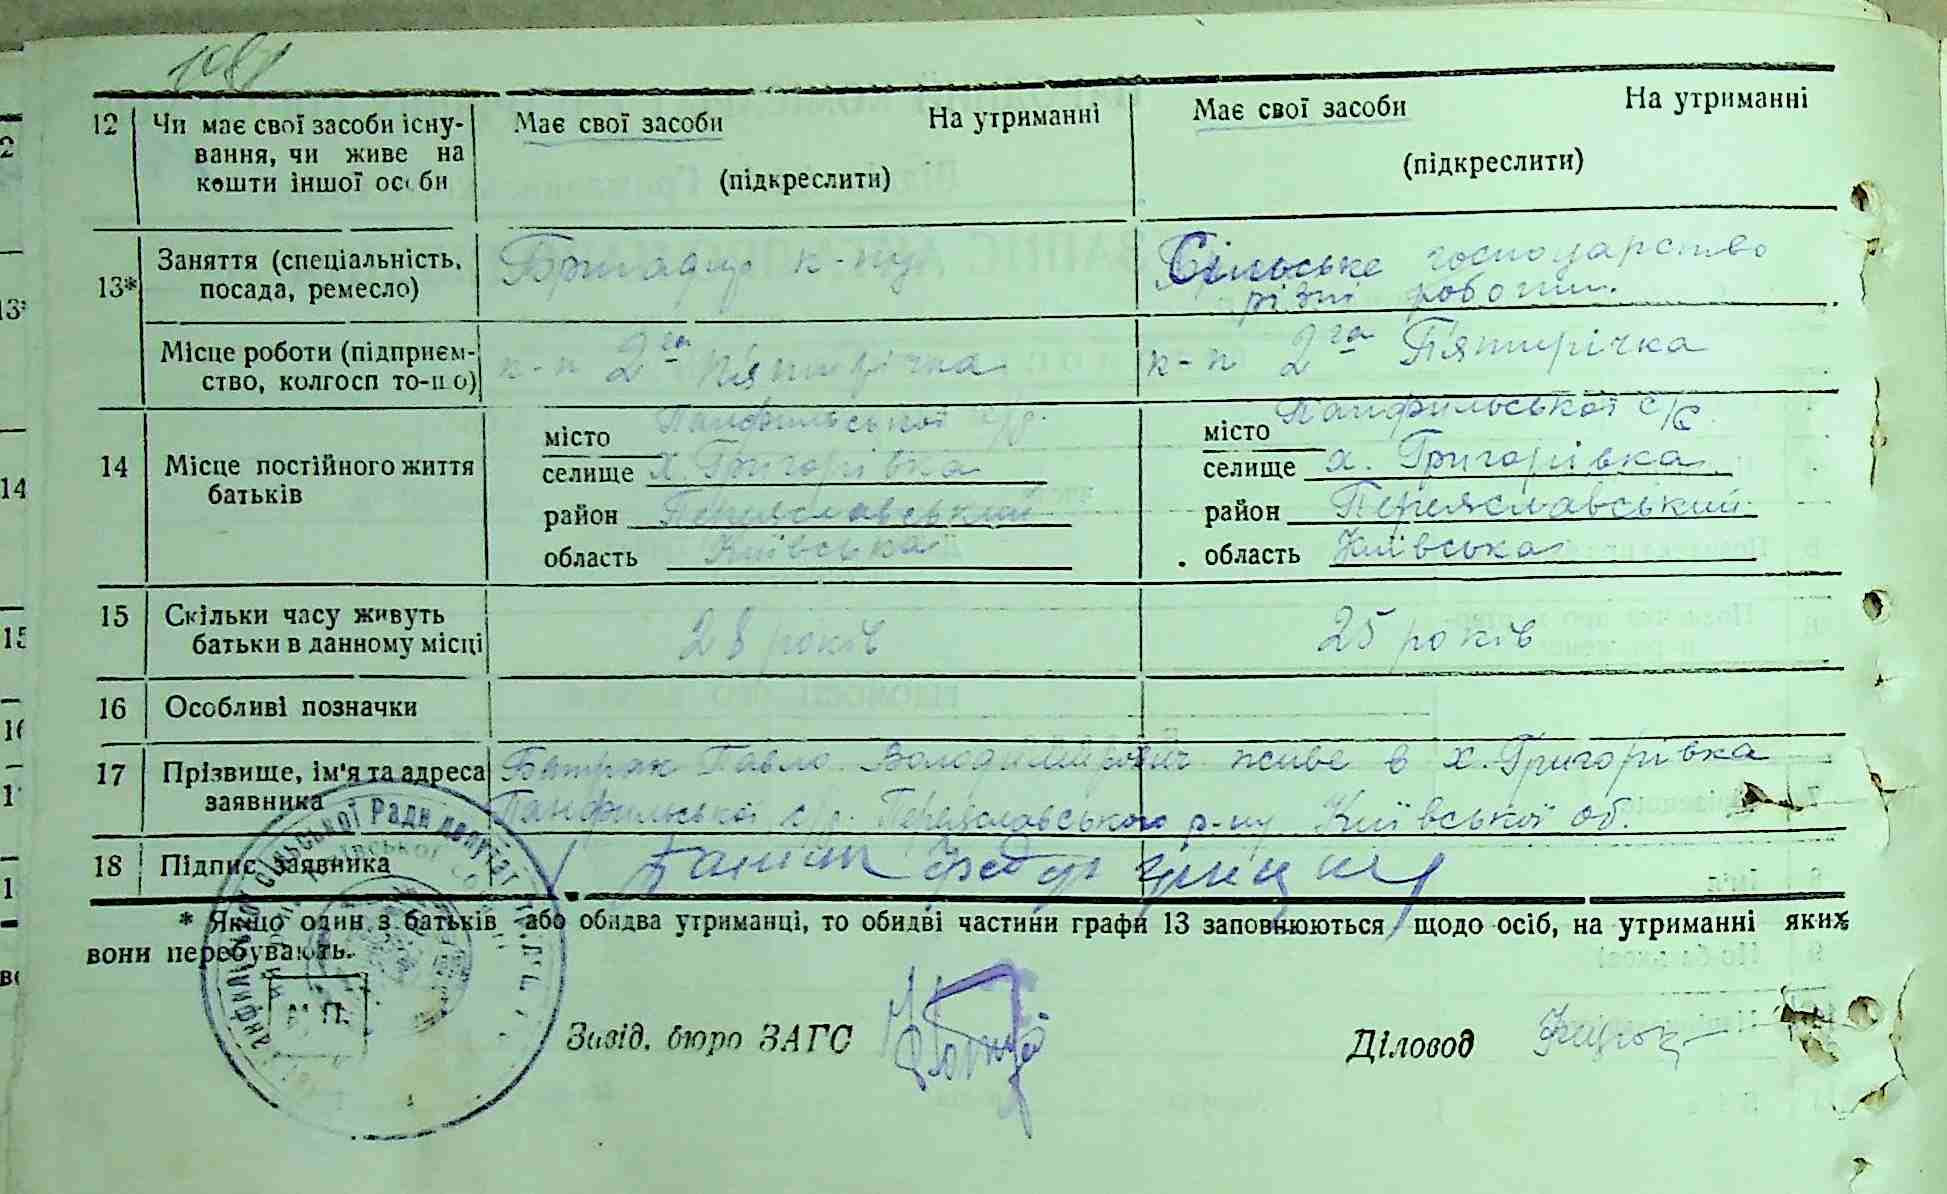 1081
12 Чи має свої засоби існу- Має свої засоби На утриманні Має свої засоби На утриманні
вання, чи живе на
кошти іншої особи (підкреслити) (підкреслити)
13* Заняття (спеціальність, Бригадир к-пу Сільське господарство
посада, ремесло) різні роботи.
Місце роботи (підприєм- к-п 2га П'ятирічка к-п 2га П'ятирічка
ство, колгосп то-що)
Панфильської с/р. Панфильської с/р.
місто місто
14 Місце постійного життя селище х. Григорівка селище х. Григорівка
батьків
район Переяславський район Переяславський
область Київська область Київська
15 Скільки часу живуть 28 років 25 років
батьки в данному місці
16 Особливі позначки
17 Прізвище, ім'я та адреса Батрак Павло Володимирович живе в х. Григорівка
заявника Панфильської с/р. Переяславського р-ну Київської об.
18 Підпис заявника
* Якщо один з батьків або обидва утриманці, то обидві частини графи 13 заповнюються щодо осіб, на утриманні яких
вони перебувають.
М. П.
Завід. бюро ЗАГС Діловод